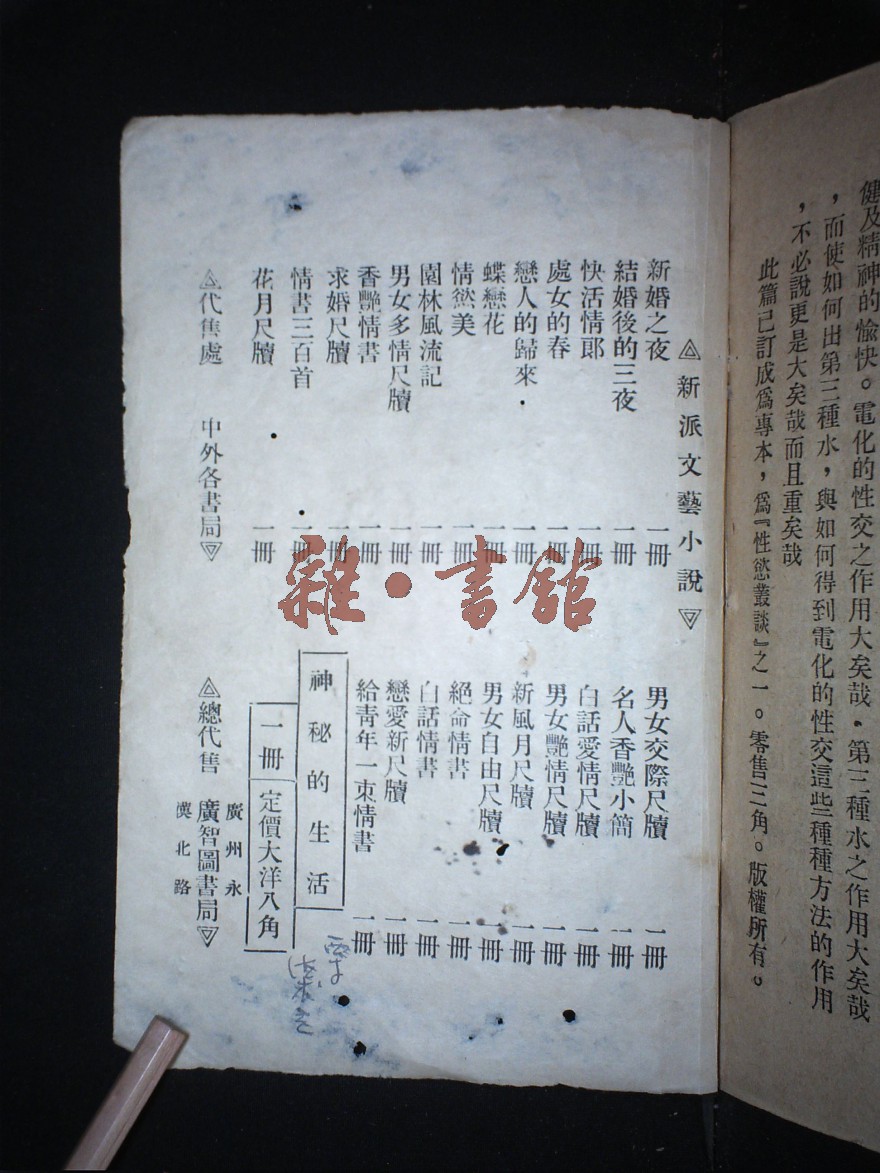 健及精神的愉快。電化的性交之作用大矣哉。第三種水之作用大矣哉
，而使如何出第三種水，與如何得到電化的性交這些種種方法的作用
，不必說更是大矣哉而且重矣哉
此篇已訂成爲專本，爲『性慾叢談』之一。零售三角。版權所有。
新派文藝小說
新婚之夜 一冊
結婚後的三夜 一冊
快活情郎 一冊
處女的春 一冊
戀人的歸來 一冊
蝶戀花 一冊
情慾美 一冊
園林風流記 一冊
男女多情尺牘 一冊
香艷情書 一冊
求婚尺牘 一冊
情書三百首 一冊
花月尺牘 一冊
男女交際尺牘 一冊
名人香艷小簡 一冊
白話愛情尺牘 一冊
男女艷情尺牘 一冊
新風月尺牘 一冊
男女自由尺牘 一冊
絕命情書 一冊
白話情書 一冊
戀愛新尺牘 一冊
給青年一束情書 一冊
神秘的生活
一冊 定價大洋八角
代售處 中外各書局
總代售 廣州永漢北路 廣智圖書局
雜·書館